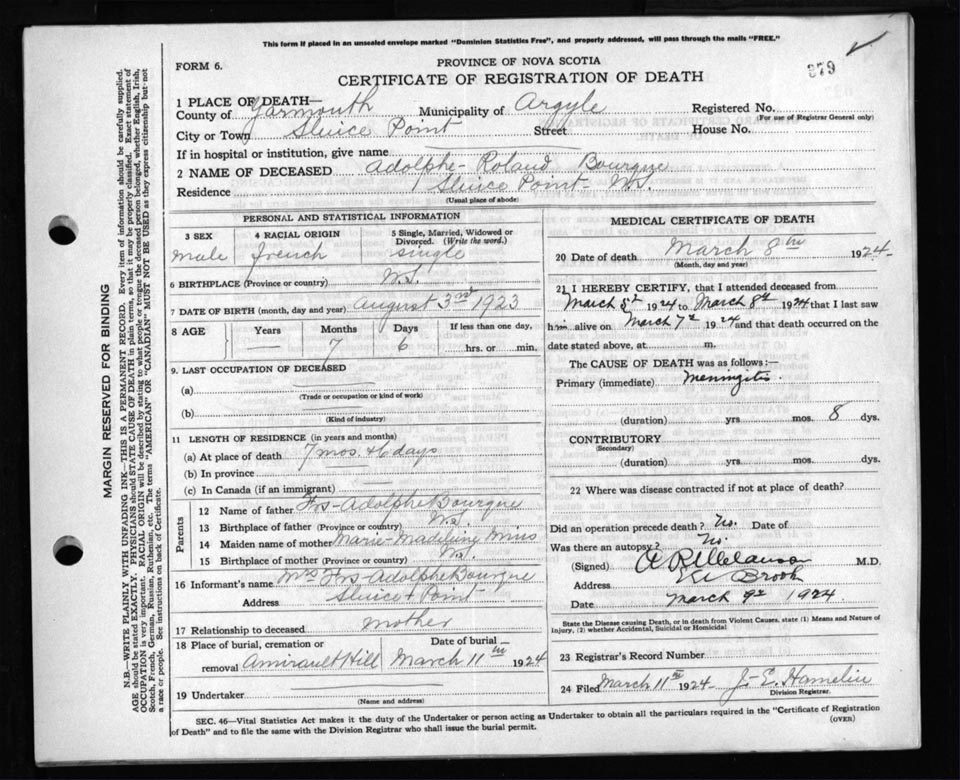 This form if placed in an unsealed envelope marked "Dominion Statistics Free", and properly addressed, will pass through the mails "FREE."
FORM 6.
PROVINCE OF NOVA SCOTIA
CERTIFICATE OF REGISTRATION OF DEATH
379
1 PLACE OF DEATH—
County of Yarmouth Municipality of Argyle Registered No.
(For use of Registrar General only)
City or Town Sluice Point Street House No.
If in hospital or institution, give name
2 NAME OF DECEASED Adolphe-Roland Bourque
Residence Sluice Point- N.S.
(Usual place of abode)
PERSONAL AND STATISTICAL INFORMATION
3 SEX male
4 RACIAL ORIGIN french
5 Single, Married, Widowed or Divorced. (Write the word.) single
6 BIRTHPLACE (Province or country) N.S.
7 DATE OF BIRTH (month, day and year) august 3rd 1923
8 AGE Years — Months 7 Days 6 If less than one day, hrs. or min.
9. LAST OCCUPATION OF DECEASED
(a)
(Trade or occupation or kind of work)
(b)
(Kind of industry)
11 LENGTH OF RESIDENCE (in years and months)
(a) At place of death 7 mos. + 6 days
(b) In province
(c) In Canada (if an immigrant)
Parents
12 Name of father Frs-Adolphe Bourque
13 Birthplace of father (Province or country) N.S.
14 Maiden name of mother Marie-Madeleine Mius
15 Birthplace of mother (Province or country) N.S.
16 Informant's name Mrs Frs-Adolphe Bourque
Address Sluice Point
17 Relationship to deceased mother
18 Place of burial, cremation or removal Amirault Hill
Date of burial March 11th 1924
19 Undertaker
(Name and address)
MEDICAL CERTIFICATE OF DEATH
20 Date of death March 8th 1924
(Month, day and year)
21 I HEREBY CERTIFY, that I attended deceased from
March 5th 1924 to March 8th 1924 that I last saw
him alive on March 7th 1924 and that death occurred on the
date stated above, at m.
The CAUSE OF DEATH was as follows:—
Primary (immediate) Meningitis
(duration) yrs mos. 8 dys.
CONTRIBUTORY
(Secondary)
(duration) yrs mos. dys.
22 Where was disease contracted if not at place of death?
Did an operation precede death? No. Date of
Was there an autopsy? No.
(Signed) M.D.
Address Brook
Date March 9th 1924
State the Disease causing Death, or in death from Violent Causes, state (1) Means and Nature of
Injury, (2) whether Accidental, Suicidal or Homicidal
23 Registrar's Record Number
24 Filed March 11th 1924 J. E. Hamelin
Division Registrar.
SEC. 46—Vital Statistics Act makes it the duty of the Undertaker or person acting as Undertaker to obtain all the particulars required in the "Certificate of Registration
of Death" and to file the same with the Division Registrar who shall issue the burial permit. (OVER)
MARGIN RESERVED FOR BINDING
N.B.—WRITE PLAINLY WITH UNFADING INK—THIS IS A PERMANENT RECORD. Every item of information should be carefully supplied.
AGE should be stated EXACTLY. PHYSICIANS should STATE CAUSE OF DEATH in plain terms, so that it may be properly classified. Exact statement of
OCCUPATION is very important. RACIAL ORIGIN will be described by stating to what people or tongue the deceased person belonged, whether English, Irish,
Scotch, French, German, Russian, Ruthenian, etc. The terms "AMERICAN" OR "CANADIAN" MUST NOT BE USED as they express citizenship but not
a race or people. See instructions on back of Certificate.